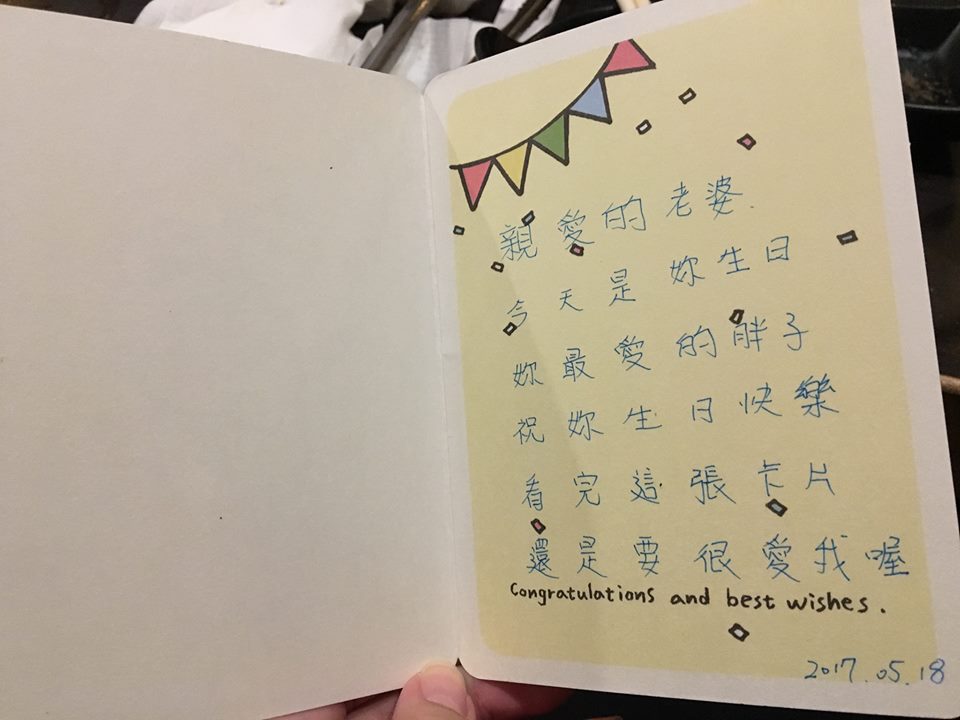 親愛的老婆
今天是妳生日
妳最愛的胖子
祝妳生日快樂
看完這張卡片
還是要很愛我喔
Congratulations and best wishes.
2017.05.18